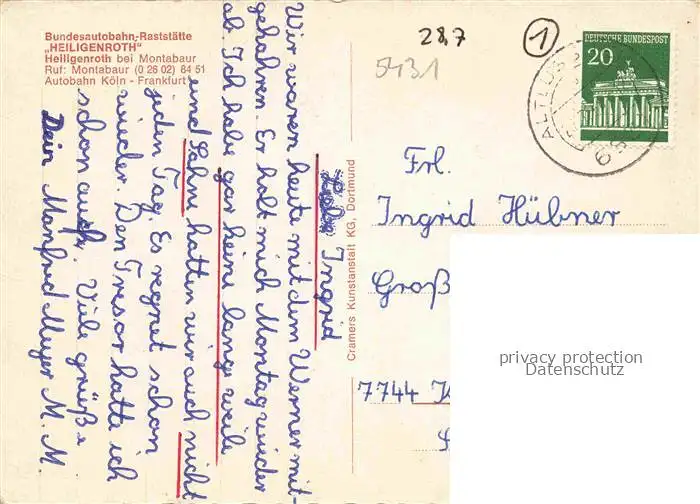 Bundesautobahn-Raststätte
„HEILIGENROTH"
Heiligenroth bei Montabaur
Ruf: Montabaur (0 26 02) 64 51
Autobahn Köln - Frankfurt
Ingrid
Wir waren heute mit dem Werner mit-
gefahren. Er holt mich Montag wieder
ab. Ich habe gar keine lange weile
und hatten wir auch nicht
jeden Tag. Es regnet schon
wieder. Den Tresor hatte ich
schon auch. Viele grüße
Dein Manfred Meyer M. M.
Cramers Kunstanstalt KG, Dortmund
28,7
1
5431
DEUTSCHE BUNDESPOST
20
ALTLUS
Frl.
Ingrid Hübner
Groß
7744
privacy protection
Datenschutz